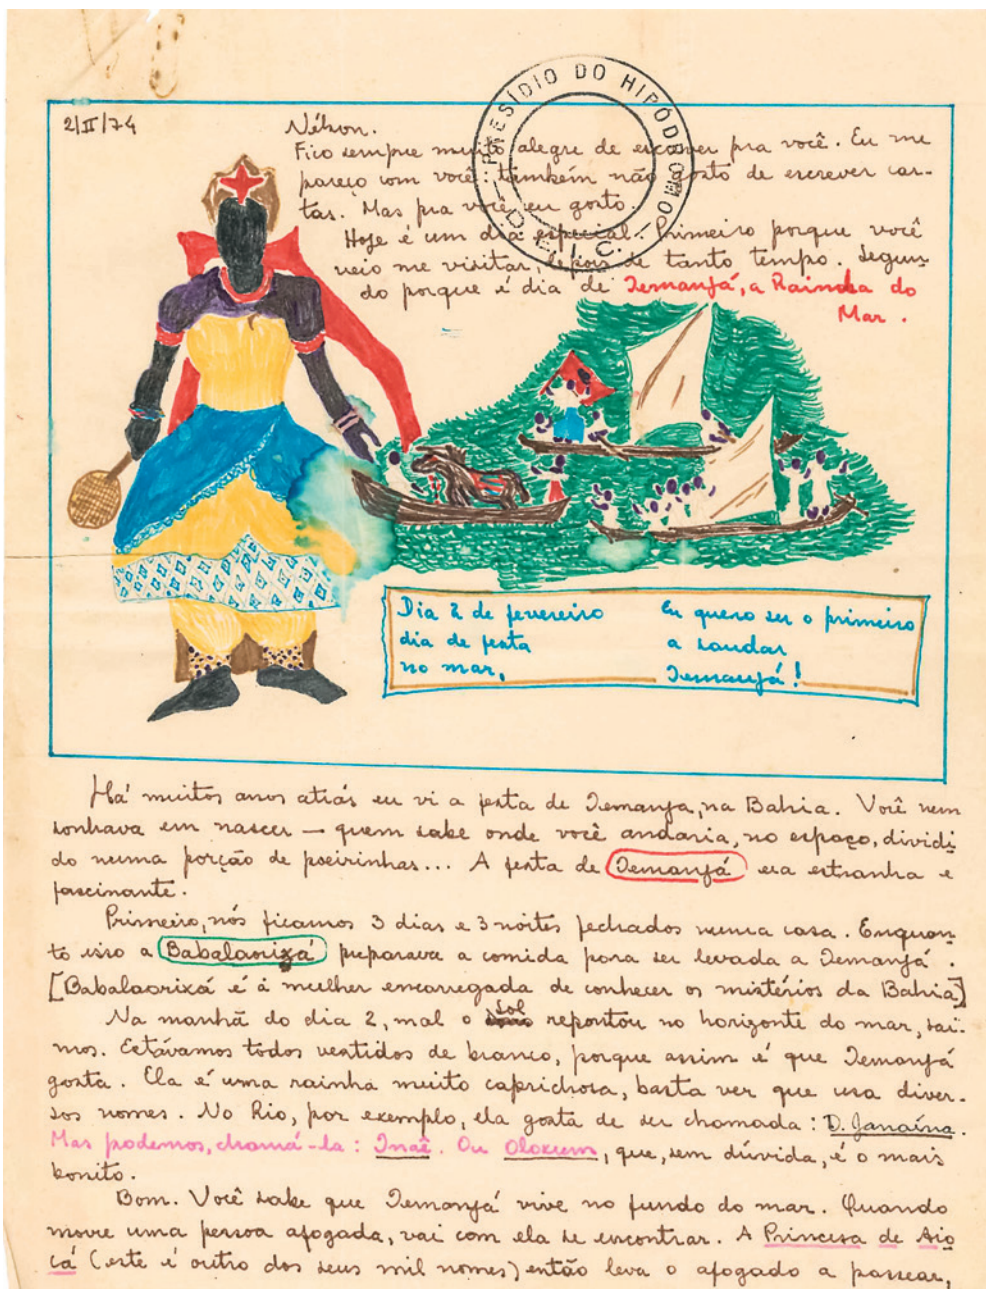 PRESÍDIO DO HIPÓDROMO
D.E.I.C.
2/II/74
Nélson.
Fico sempre muito alegre de escrever pra você. Eu me
pareço com você: também não gosto de escrever car-
tas. Mas pra você eu gosto.
Hoje é um dia especial. Primeiro porque você
veio me visitar, depois de tanto tempo. Segun
do porque é dia de Iemanjá, a Rainha do
Mar.
Dia 2 de fevereiro
dia de festa
no mar,
Eu quero ser o primeiro
a saudar
Iemanjá!
Há muitos anos atrás eu vi a festa de Iemanjá, na Bahia. Você nem
sonhava em nascer — quem sabe onde você andaria, no espaço, dividi
do numa porção de poeirinhas... A festa de Iemanjá era estranha e
fascinante.
Primeiro, nós ficamos 3 dias e 3 noites fechados numa casa. Enquan
to isso a Babalaorixá preparava a comida para ser levada a Iemanjá.
[Babalaorixá é a mulher encarregada de conhecer os mistérios da Bahia]
Na manhã do dia 2, mal o Sol repontou no horizonte do mar, saí-
mos. Estávamos todos vestidos de branco, porque assim é que Iemanjá
gosta. Ela é uma rainha muito caprichosa, basta ver que usa diver-
sos nomes. No Rio, por exemplo, ela gosta de ser chamada: D. Janaína.
Mas podemos, chamá-la: Inaê. Ou Oloxum, que, sem dúvida, é o mais
bonito.
Bom. Você sabe que Iemanjá vive no fundo do mar. Quando
morre uma pessoa afogada, vai com ela se encontrar. A Princesa de Aio
cá (este é outro dos seus mil nomes) então leva o afogado a passear,